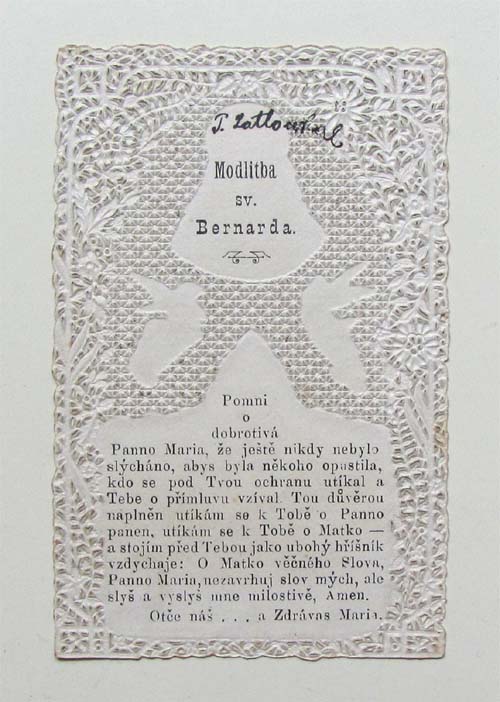 Modlitba
sv.
Bernarda.
Pomni
o
dobrotivá
Panno Maria, že ještě nikdy nebylo
slýcháno, abys byla někoho opustila,
kdo se pod Tvou ochranu utíkal a
Tebe o přímluvu vzýval. Tou důvěrou
naplněn utíkám se k Tobě o Panno
panen, utíkám se k Tobě o Matko —
a stojím před Tebou jako ubohý hříšník
vzdychaje: O Matko věčného Slova,
Panno Maria, nezavrhuj slov mých, ale
slyš a vyslyš mne milostivě, Amen.
Otče náš . . . a Zdrávas Maria.